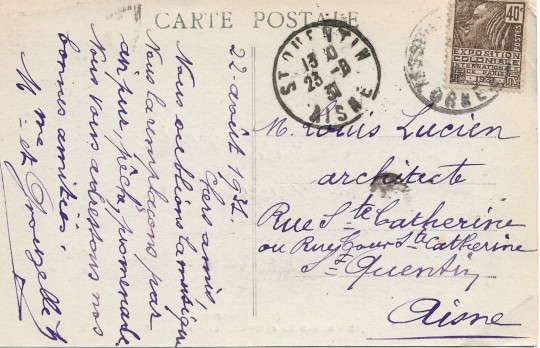 CARTE POSTALE
22 août 1931
Chers amis,
Nous oublions la musique
Nous la remplaçons par
air pur, pêche, promenade
Nous vous adressons nos
bonnes amitiés.
M. et Mme
ST QUENTIN
13 H
23 -8
31
AISNE
40c
POSTES
EXPOSITION
COLONIALE
INTERNATIONALE
PARIS
M. Louis Lucien
architecte
Rue Ste Catherine
ou Rue Cour Ste Catherine
St Quentin
Aisne